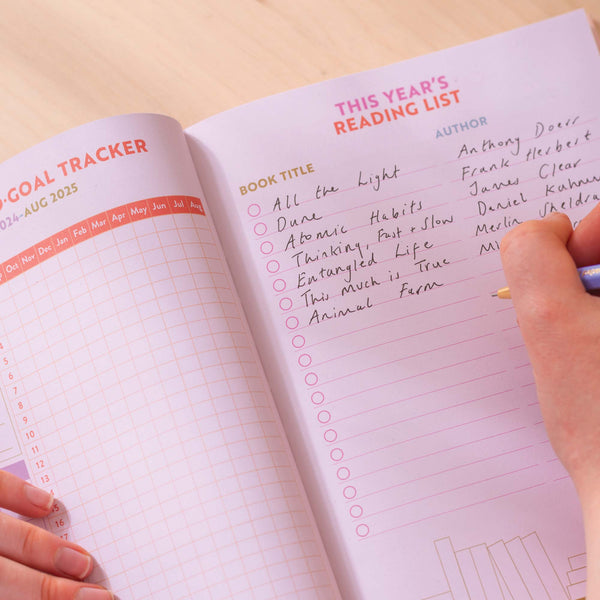 GOAL TRACKER
024-AUG 2025
Oct Nov Dec Jan Feb Mar Apr May Jun Jul Aug
4
5
6
7
8
9
10
11
12
13
15
16
17
THIS YEAR'S
READING LIST
BOOK TITLE AUTHOR
All the Light Anthony Doerr
Dune Frank Herbert
Atomic Habits James Clear
Thinking, Fast + Slow Daniel Kahnem
Entangled Life Merlin Sheldra
This much is True Mi
Animal Farm